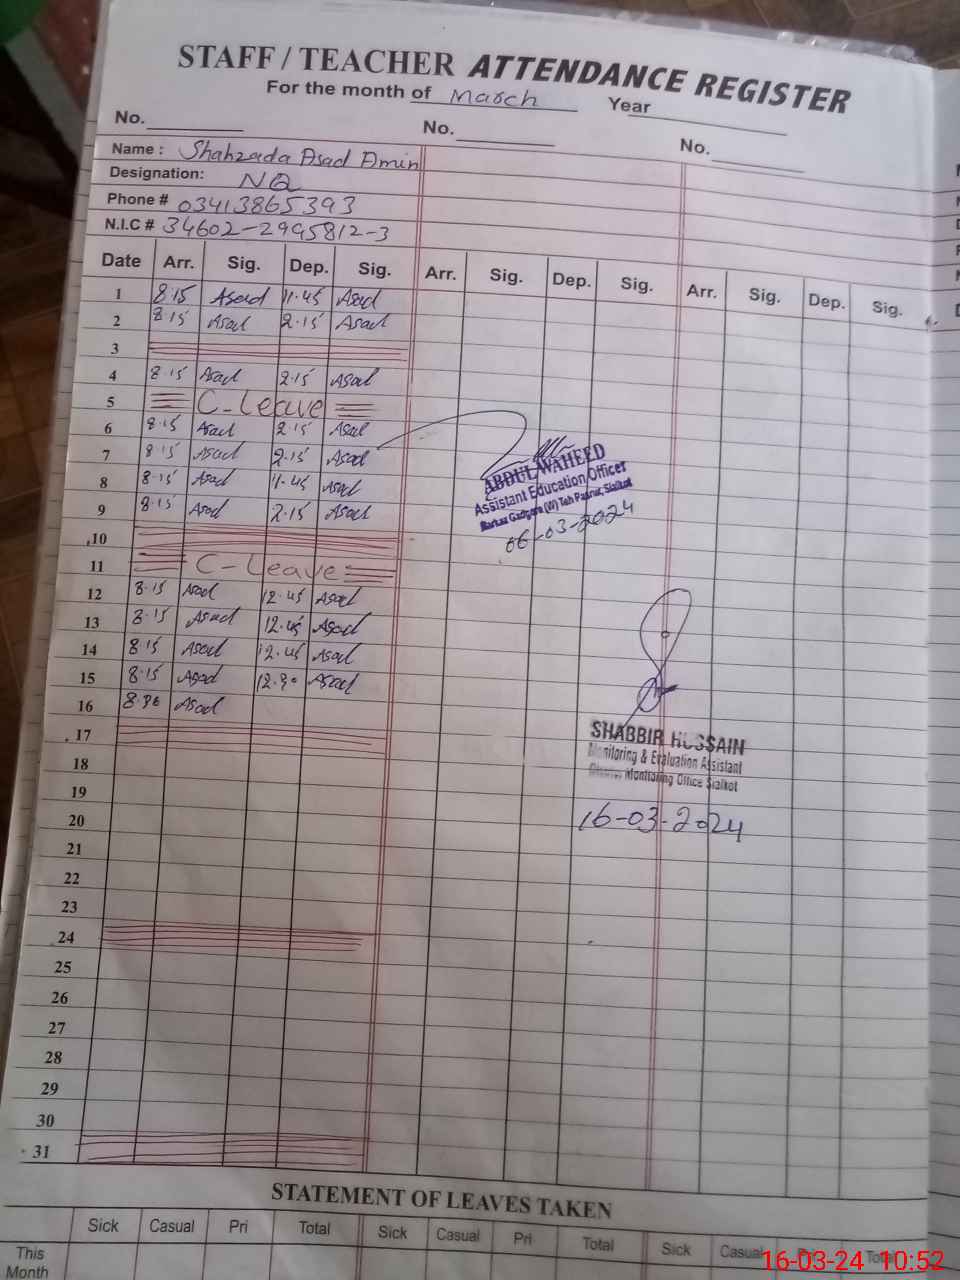 STAFF / TEACHER ATTENDANCE REGISTER
For the month of March Year
No. No. No.
Name : Shahzada Asad Amin
Designation: NQ
Phone # 03413865393
N.I.C # 34602-2995812-3
Date Arr. Sig. Dep. Sig. Arr. Sig. Dep. Sig. Arr. Sig. Dep. Sig.
1 8.15 Asad 11.45 Asad
2 8.15 Asad 2.15 Asad
3
4 8.15 Asad 2.15 Asad
5 C-Leave
6 8.15 Asad 2.15 Asad
7 8.15 Asad 2.15 Asad
8 8.15 Asad 11.45 Asad
9 8.15 Asad 2.15 Asad
10
11 C-Leave
12 8.15 Asad 12.45 Asad
13 8.15 Asad 12.45 Asad
14 8.15 Asad 12.45 Asad
15 8.15 Asad 12.30 Asad
16 8.30 Asad
17
18
19
20
21
22
23
24
25
26
27
28
29
30
31
ABDUL WAHEED
Assistant Education Officer
Markaz (W) Teh Pasrur, Sialkot
06-03-2024
SHABBIR HUSSAIN
Monitoring & Evaluation Assistant
Monitoring Office Sialkot
16-03-2024
STATEMENT OF LEAVES TAKEN
Sick Casual Pri Total Sick Casual Pri Total Sick Casual Total
This
Month
16-03-24 10:52